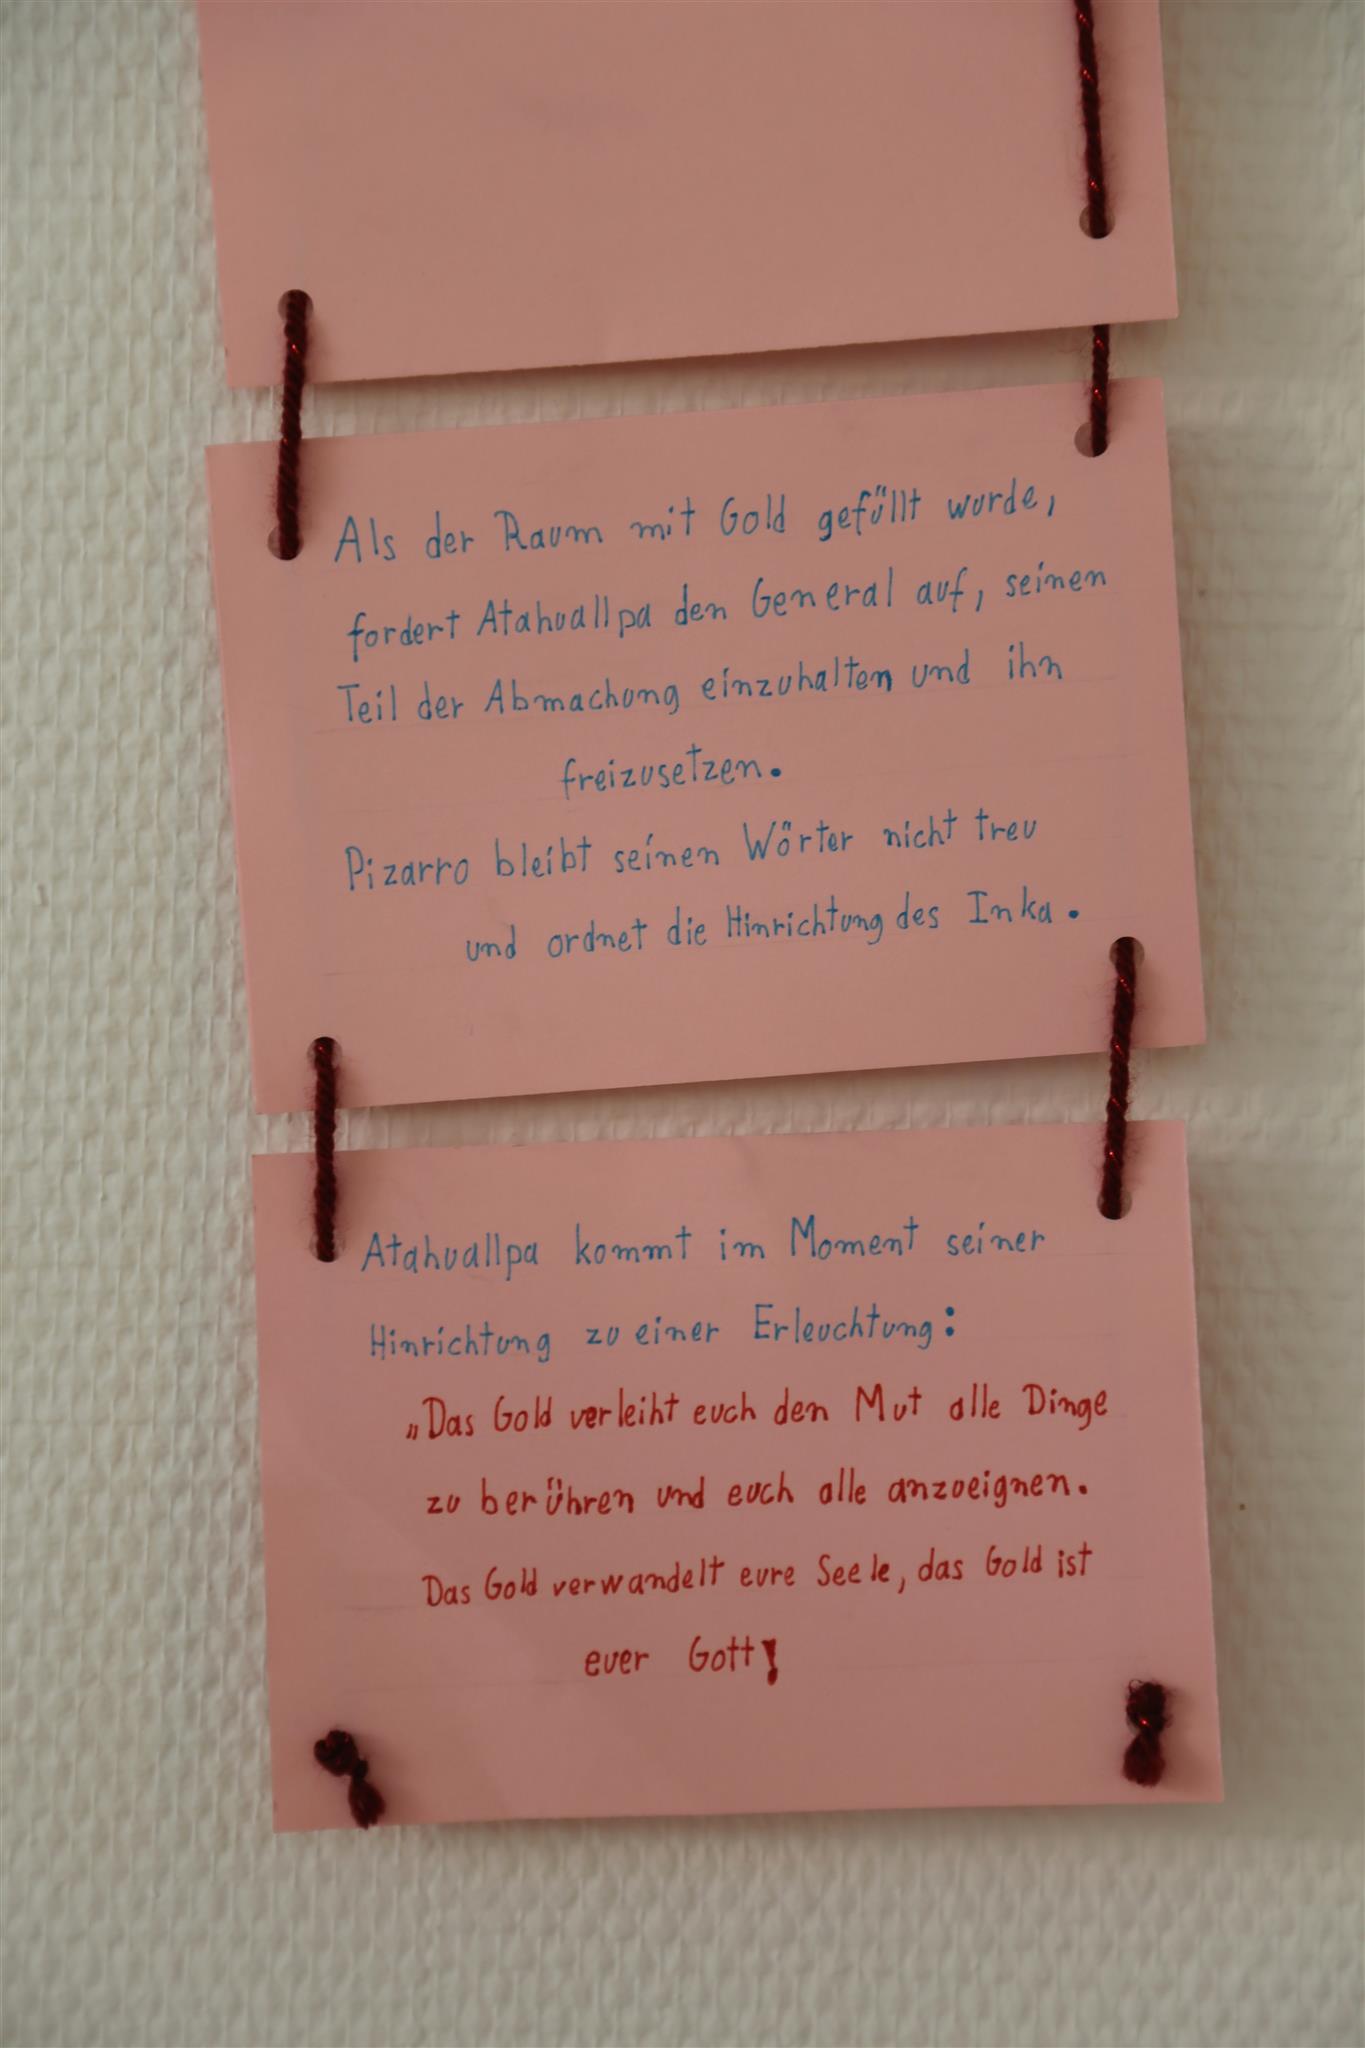 Als der Raum mit Gold gefüllt wurde,
fordert Atahuallpa den General auf, seinen
Teil der Abmachung einzuhalten und ihn
freizusetzen.
Pizarro bleibt seinen Wörter nicht treu
und ordnet die Hinrichtung des Inka.
Atahuallpa kommt im Moment seiner
Hinrichtung zu einer Erleuchtung:
„Das Gold verleiht euch den Mut alle Dinge
zu berühren und euch alle anzueignen.
Das Gold verwandelt eure Seele, das Gold ist
euer Gott!